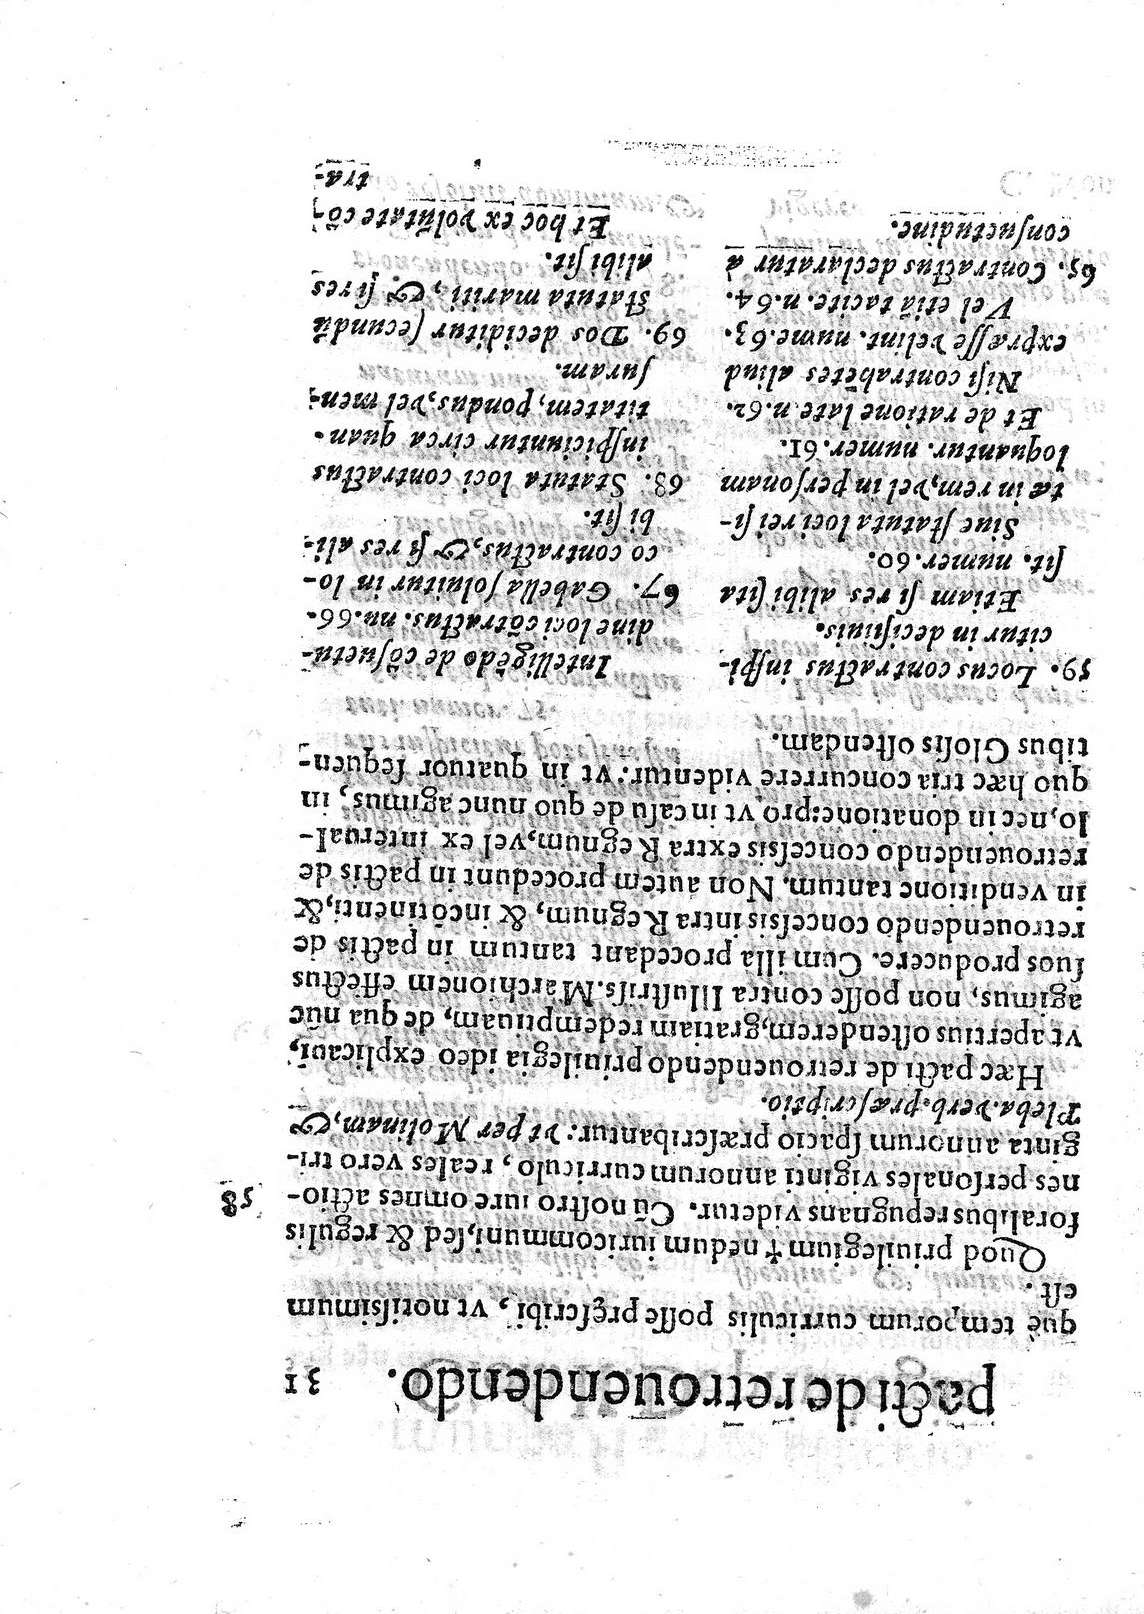 pacti de retrouendendo. 31
quē temporum curriculis posse pręscribi, vt notissimum
est.
Quod priuilegium † nedum iuricommuni, sed & regulis
foralibus repugnans videtur. Cū nostro iure omnes actio- 58
nes personales viginti annorum curriculo, reales vero tri-
ginta annorum spacio præscribantur: vt per Molinam, &
Pleba. verb. præscriptio.
Hæc pacti de retrouendendo priuilegia ideo explicaui,
vt apertius ostenderem, gratiam redemptiuam, de qua nūc
agimus, non posse contra Illustriss. Marchionem effectus
suos producere. Cum illa procedant tantum in pactis de
retrouendendo concessis intra Regnum, & incōtinenti, &
in venditione tantum. Non autem procedunt in pactis de
retrouendendo concessis extra Regnum, vel ex interual-
lo, nec in donatione: pro vt in casu de quo nunc agimus, in
quo hæc tria concurrere videntur: vt in quatuor sequen-
tibus Glosis ostendam.
59. Locus contractus inspi-
citur in decisiuis.
Etiam si res alibi sita
sit. numer. 60.
Siue statuta loci rei si-
tæ in rem, vel in personam
loquantur. numer. 61.
Et de ratione late n. 62.
Nisi contrahētes aliud
expræsse velint. nume. 63.
Vel etiā tacite. n. 64.
65. Contractus declaratur à
consuetudine.
Intelligēdo de cōsuetu-
dine loci cōtractus. nu. 66.
67. Gabella soluitur in lo-
co contractus, & si res ali-
bi sit.
68. Statuta loci contractus
inspiciuntur circa quan-
titatem, pondus, vel men-
suram.
69. Dos deciditur secundū
statuta mariti, & si res
alibi sit.
Et hoc ex volūtate cō-
tra-